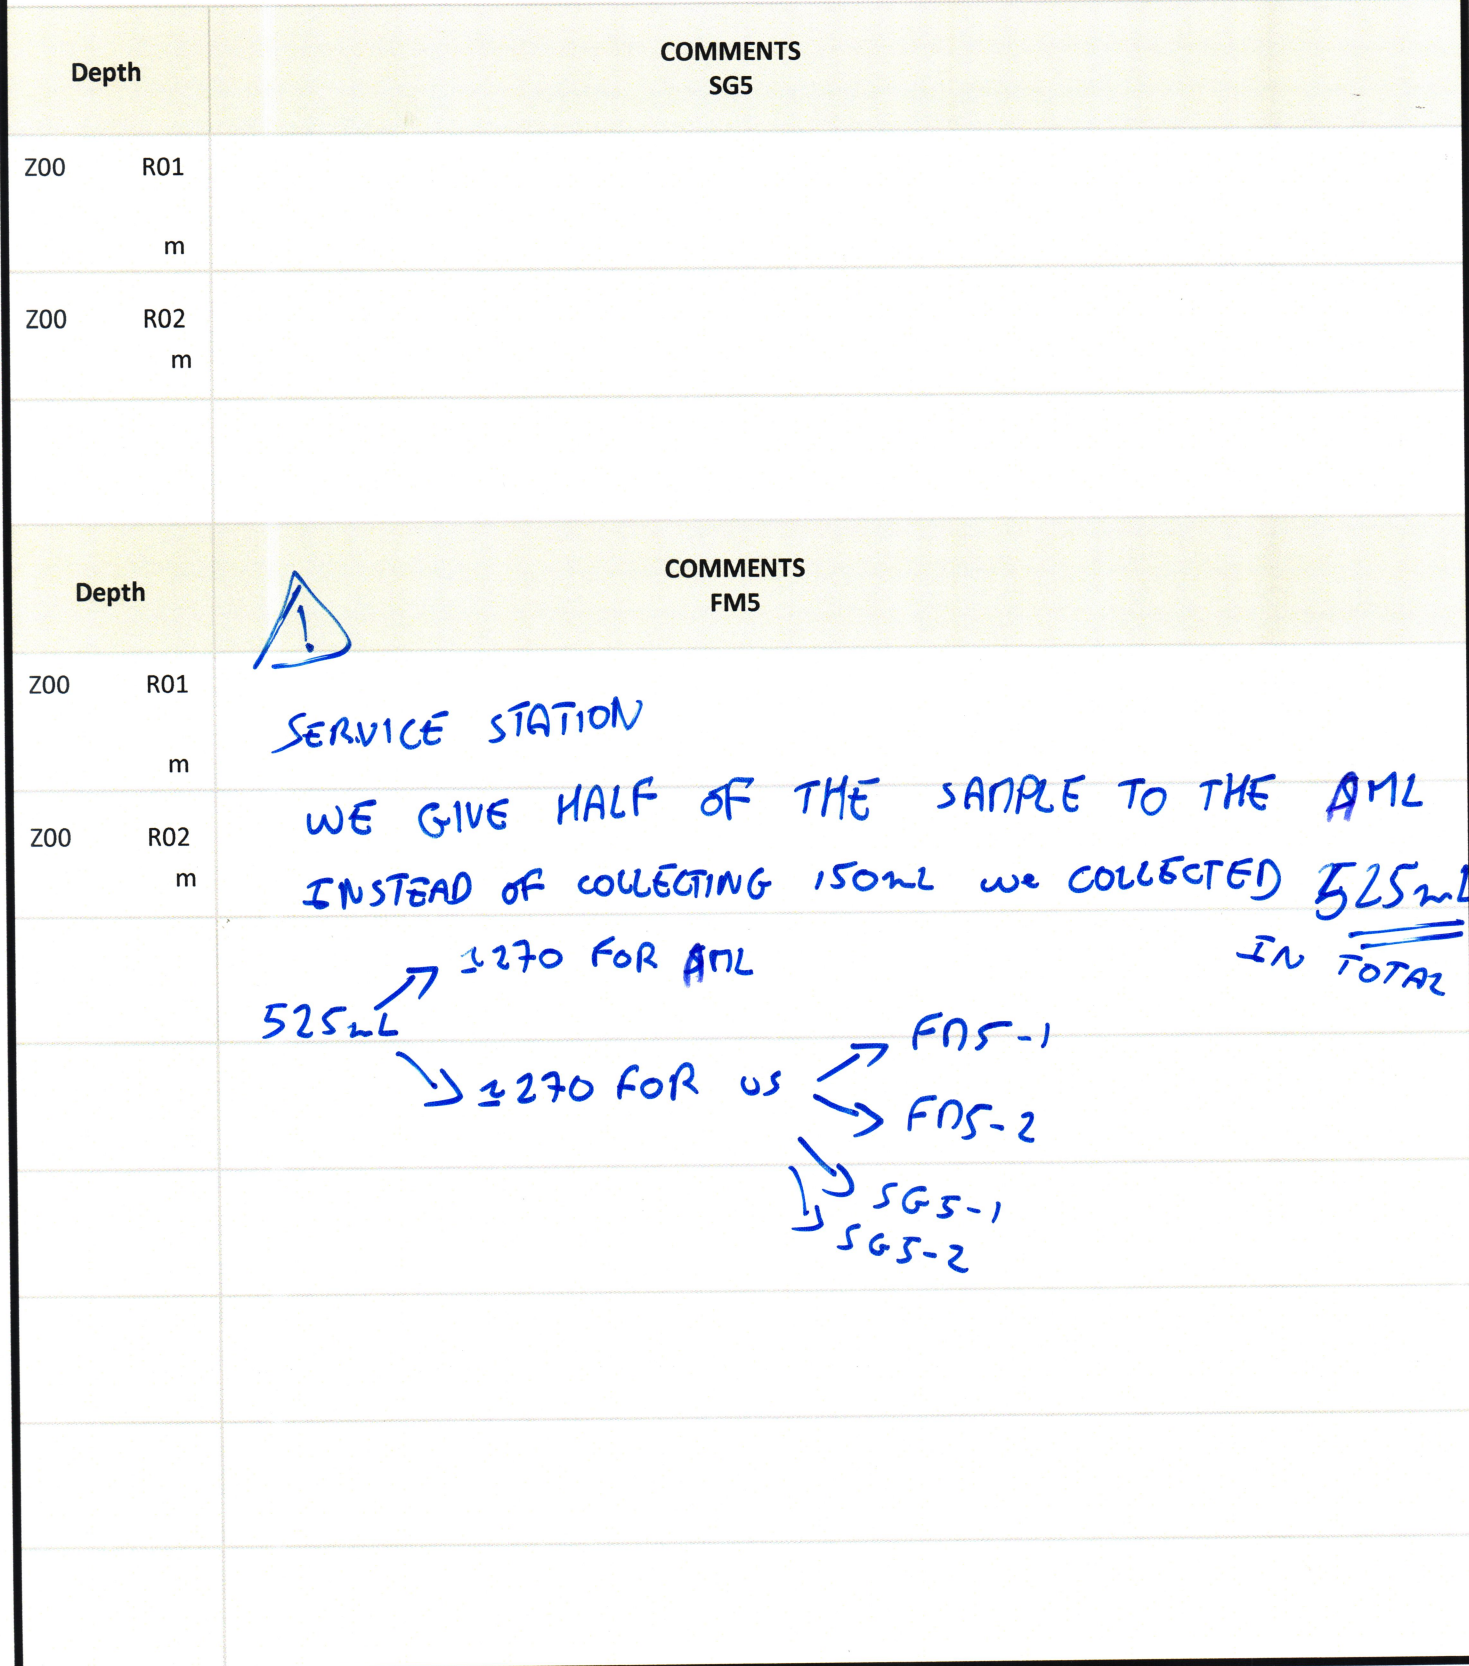 Depth COMMENTS
SG5
Z00 R01
m
Z00 R02
m
Depth COMMENTS
FM5
!
Z00 R01
SERVICE STATION
m
WE GIVE HALF OF THE SAMPLE TO THE AML
Z00 R02
m
INSTEAD OF COLLECTING 150mL we COLLECTED 525mL
IN TOTAL
± 270 FOR AML
525mL
± 270 FOR US
FM5-1
FM5-2
SG5-1
SG5-2